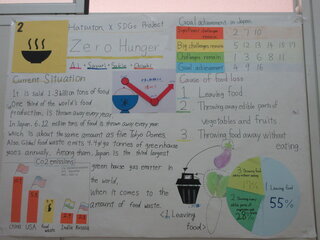 2
Hatsuton X SDGs Project
Zero Hunger
Current Situation
It is said 1.3 billion tons of food
One third of the world's food
production, is thrown away every year.
In Japan, 6.12 million tons of food is thrown away every year
which is about the same amount as five Tokyo Domes.
Also, Global food waste emits 4.4 Gt tonnes of greenhouse
gases annually. Among them, Japan is the third largest
green house gas emitter in
the world
when it comes to the
amount of food waste.
Co2 emissions
China
USA
food waste
India
Russia
Goal achievement in Japan
Significant challenges remain
2 7 10
Big challenges remain
5 12 13 14 15 17
Challenges remain
1 3 6 8 11
Goal achievement
4 9 16
Cause of food loss
1 Leaving food
2 Throwing away edible parts of
vegetables and fruits
3 Throwing food away without
eating.
1, Leaving
food
Leaving food
55%
28%
17%